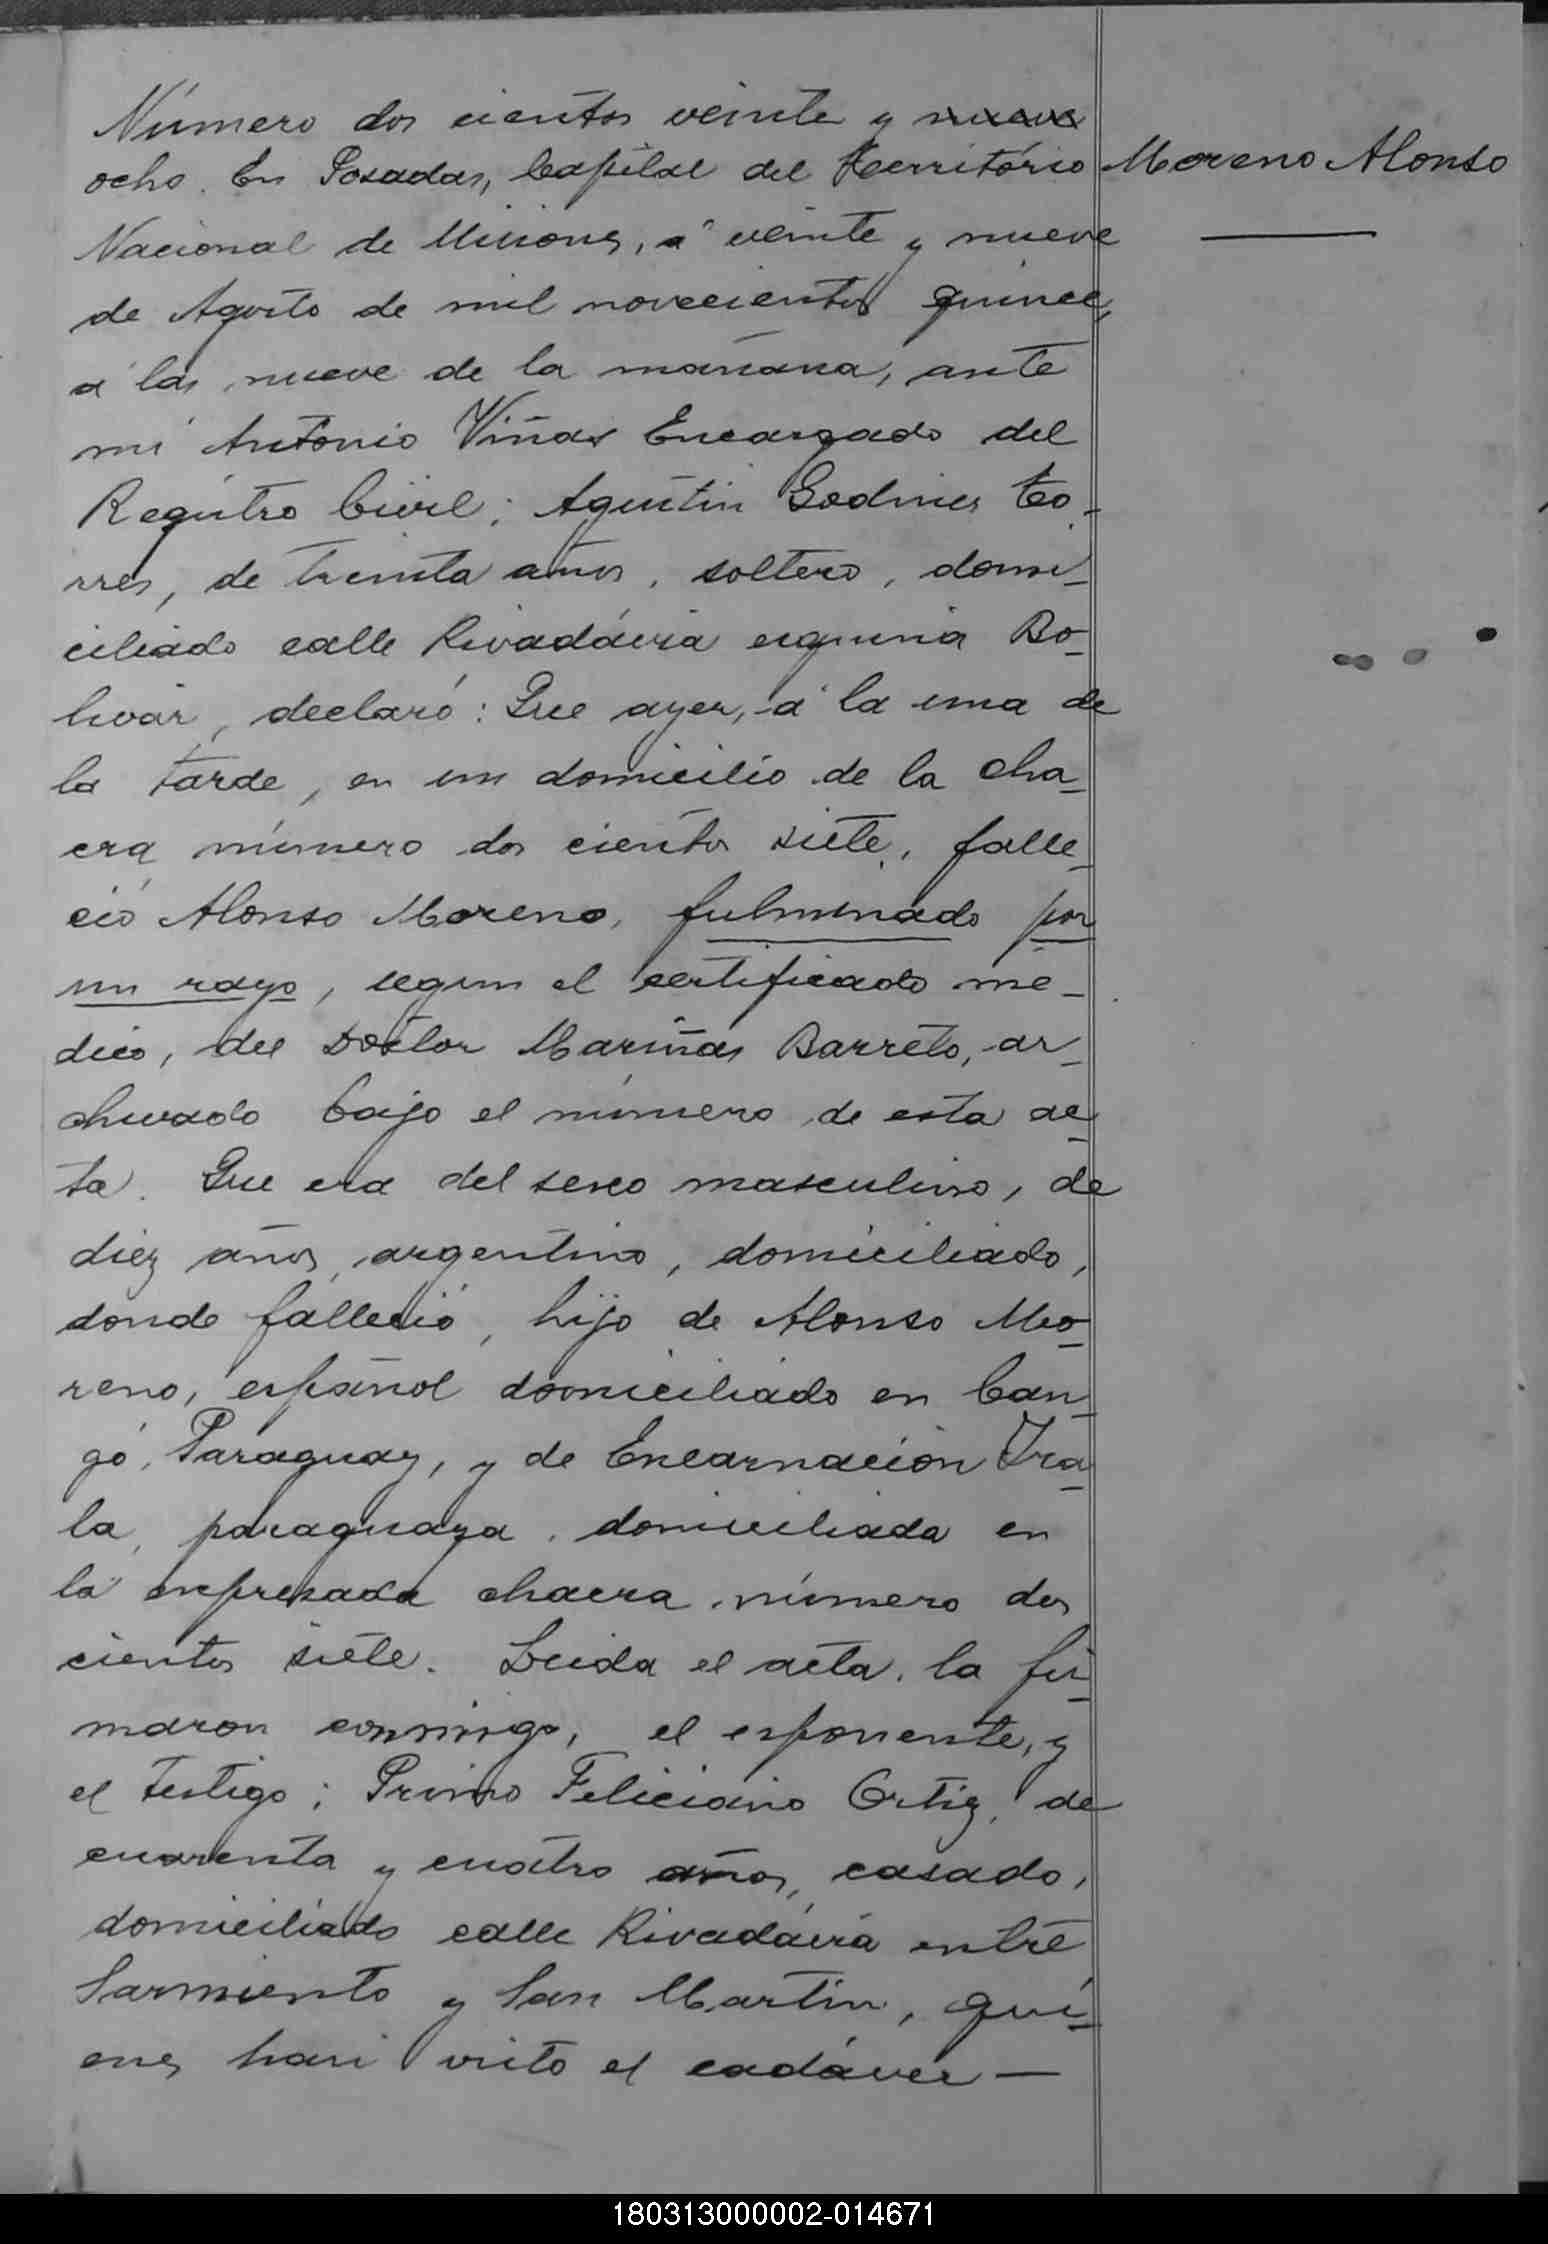 Número dos cientos veinte y nueve
ocho. En Posadas, Capital del Território
Moreno Alonso
Nacional de Misiones, á veinte y nueve
de Agosto de mil novecientos quince,
á las nueve de la mañana, ante
mi Antonio Viñas Encargado del
Registro Civil; Agustin Godines To-
rres, de treinta años, soltero, domi-
ciliado calle Rivadávia esquina Bo-
livar, declaró: Que ayer, á la una de
la tarde, en un domicilio de la cha-
cra número dos cientos siete, falle-
ció Alonso Moreno, fulminado por
un rayo, segun el certificado mé-
dico, del Doctor Mariñas Barreto, ar-
chivado bajo el número de esta ac-
ta. Que era del sexo masculino, de
diez años, argentino, domiciliado,
donde falleció, hijo de Alonso Mo-
reno, español domiciliado en Can-
gó, Paraguay, y de Encarnación Ira-
la, paraguaya, domiciliada en
la expresada chacra número dos
cientos siete. Leida el acta, la fir-
maron conmigo, el esponente, y
el testigo; Primo Feliciano Ortiz, de
cuarenta y cuatro años, casado,
domiciliado calle Rivadávia entre
Sarmiento y San Martin, qui-
enes han visto el cadáver —
180313000002-014671